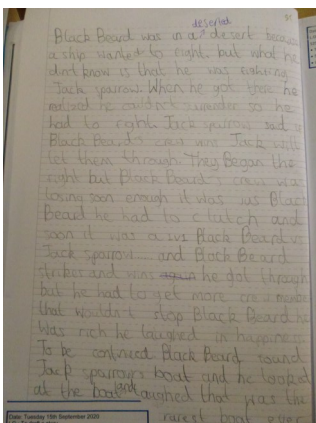 deserted
Black Beard was in a desert because
a ship wanted to fight. but what he
didnt know is that he was fighting
Jack sparrow. When he got there he
realized he couldn't surrender so he
had to fight. Jack sparrow said if
Black Beard's crew wins Jack will
let them through. They Began the
fight but Black Beard's crew was
losing soon enough it was jus Black
Beard he had to clutch and
soon it was a 1v1 Black Beard vs
Jack sparrow.... and Black Beard
strikes and wins he got through
but he had to get more crew membe
that wouldn't stop Black Beard he
was rich he laughed in happiness.
To be continued Black Beard sound
Jack sparrow's boat and he looked
at the boat and laughed that was the
rarest boat ever
Date: Tuesday 15th September 2020